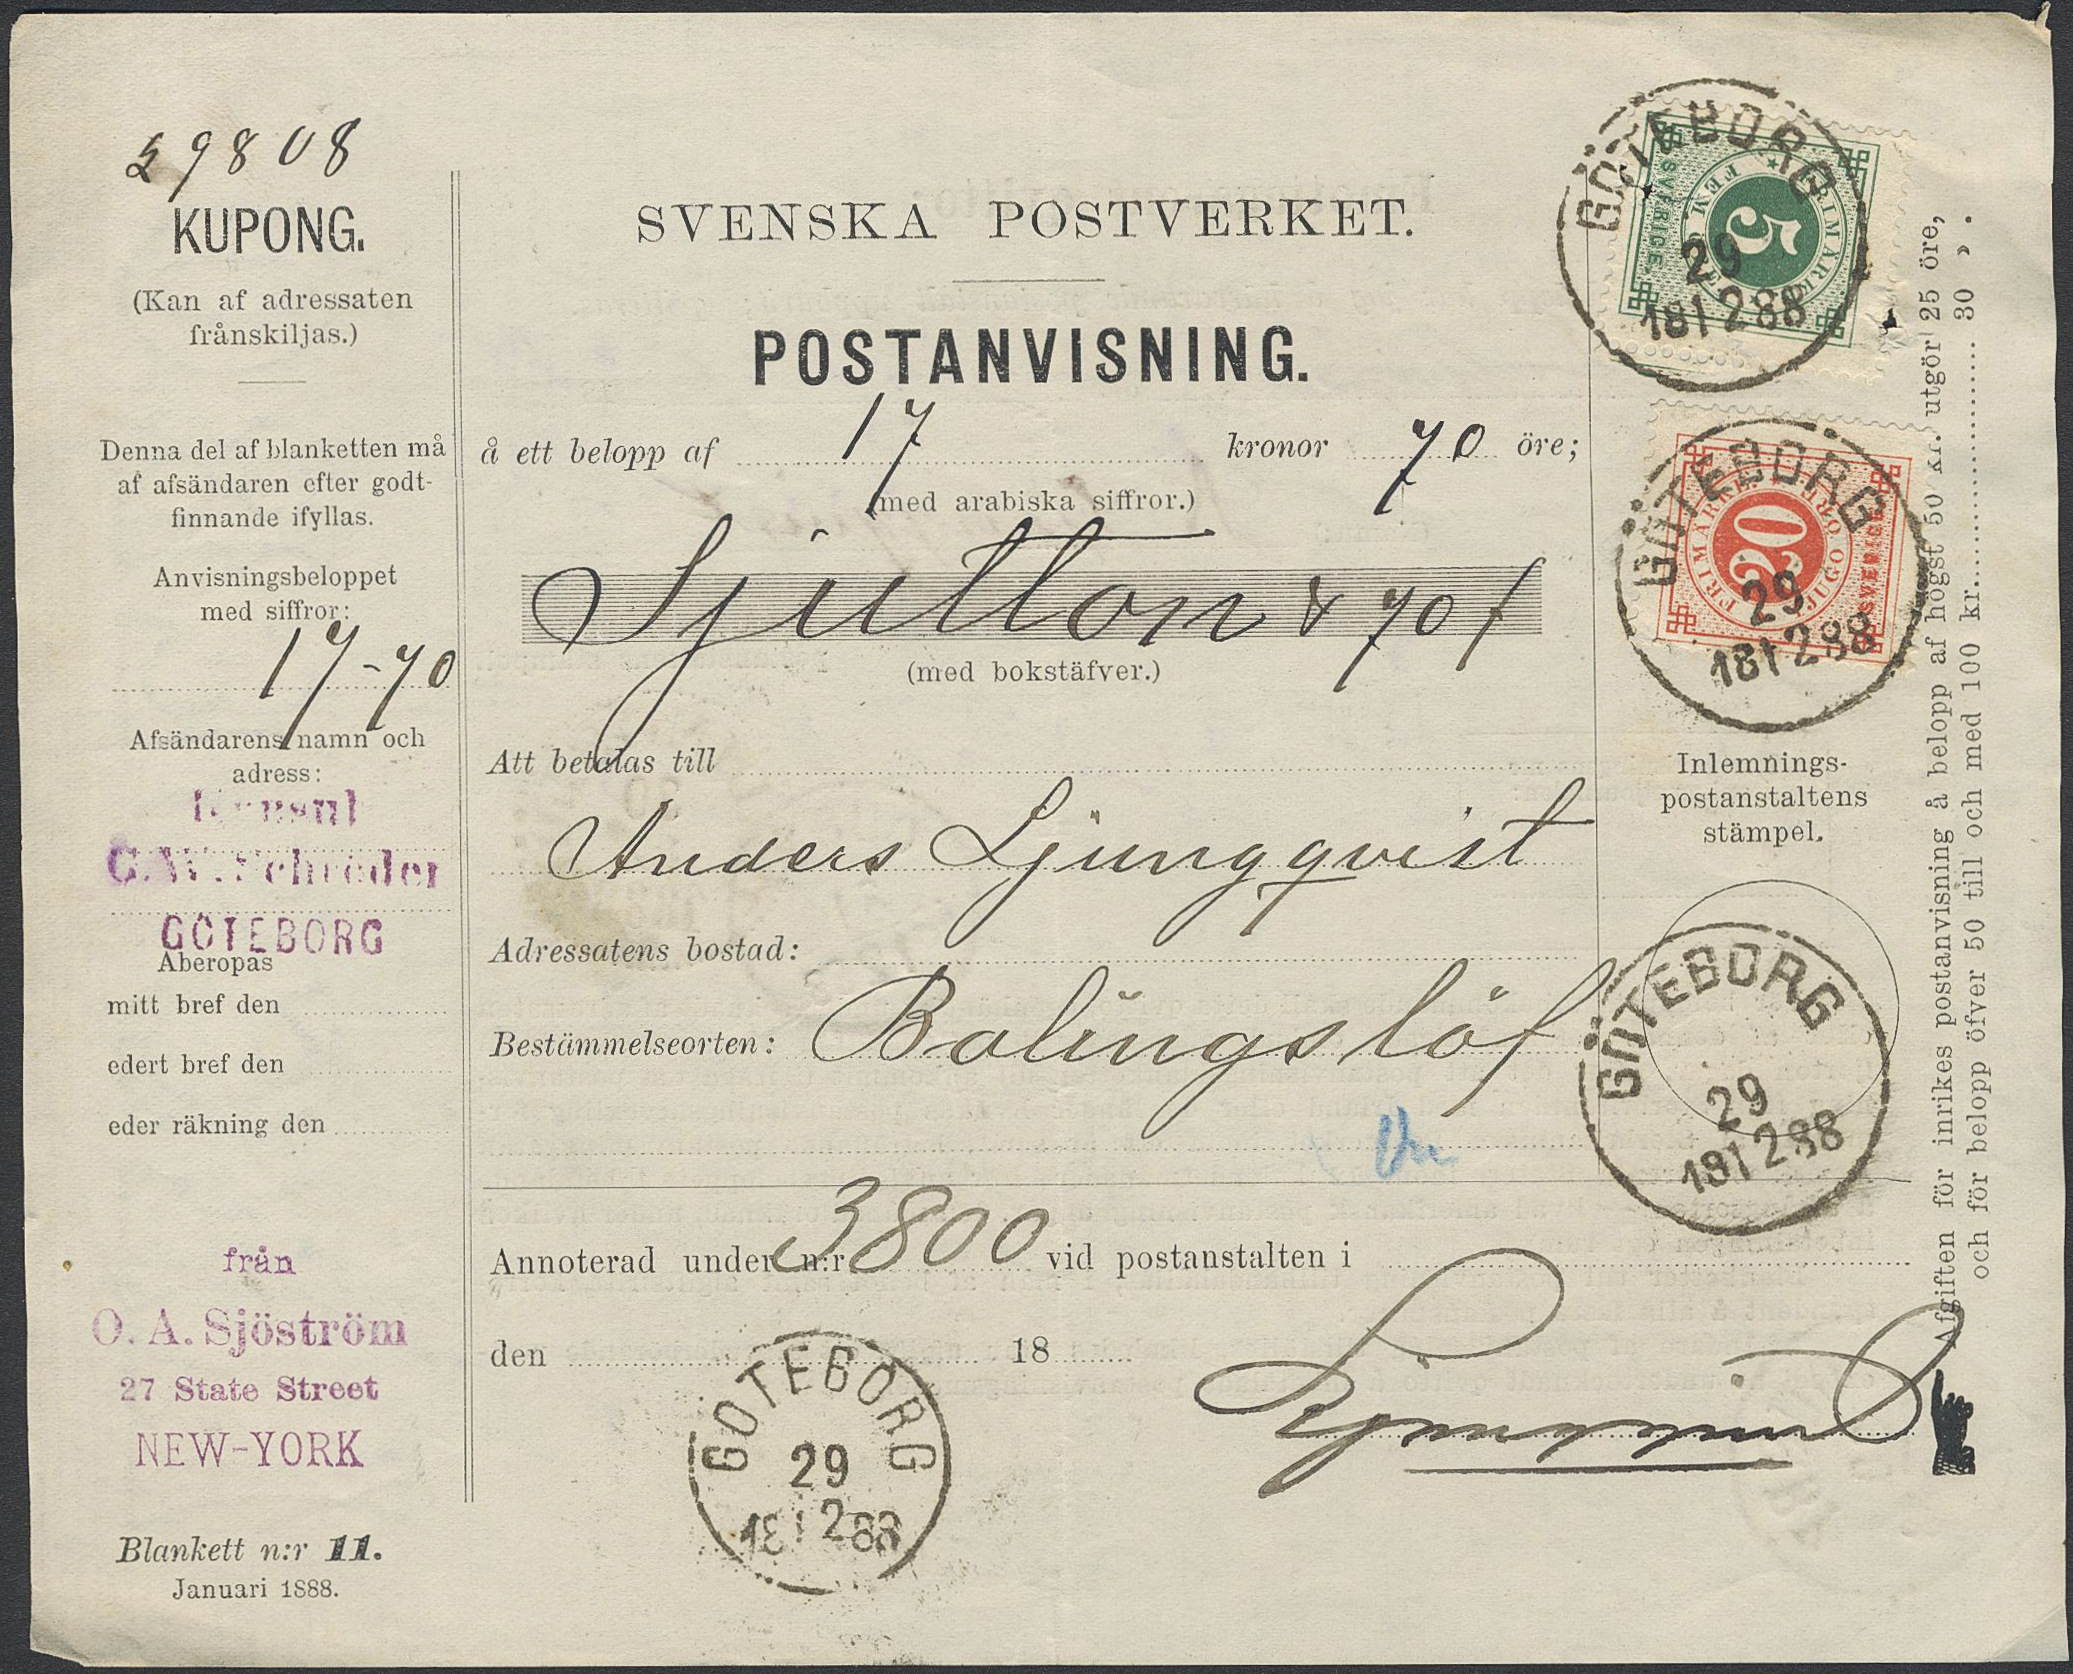 29808
KUPONG.
(Kan af adressaten
frånskiljas.)
Denna del af blanketten må
af afsändaren efter godt-
finnande ifyllas.
Anvisningsbeloppet
med siffror:
17-70
Afsändarens namn och
adress:
Konsul
C. W. Schröder
GÖTEBORG
Åberopas
mitt bref den
edert bref den
eder räkning den
från
O. A. Sjöström
27 State Street
NEW-YORK
Blankett n:r 11.
Januari 1888.
SVENSKA POSTVERKET.
POSTANVISNING.
å ett belopp af 17 kronor 70 öre;
(med arabiska siffror.)
Sjutton & 70/
(med bokstäfver.)
Att betalas till
Anders Ljungqvist
Adressatens bostad:
Bestämmelseorten: Bolingslöf
Annoterad under n:r 3800 vid postanstalten i
den 18
GÖTEBORG
29
12 88
FRIMÄRKE
FEM ÖRE
5
SVERIGE.
GÖTEBORG
29
18 12 88
FRIMÄRKE
TJUGO ÖRE
20
SVERIGE
GÖTEBORG
29
18 12 88
Inlemnings-
postanstaltens
stämpel.
GÖTEBORG
29
18 12 88
Afgiften för inrikes postanvisning å belopp af högst 50 kr. utgör 25 öre,
och för belopp öfver 50 till och med 100 kr. 30 ».